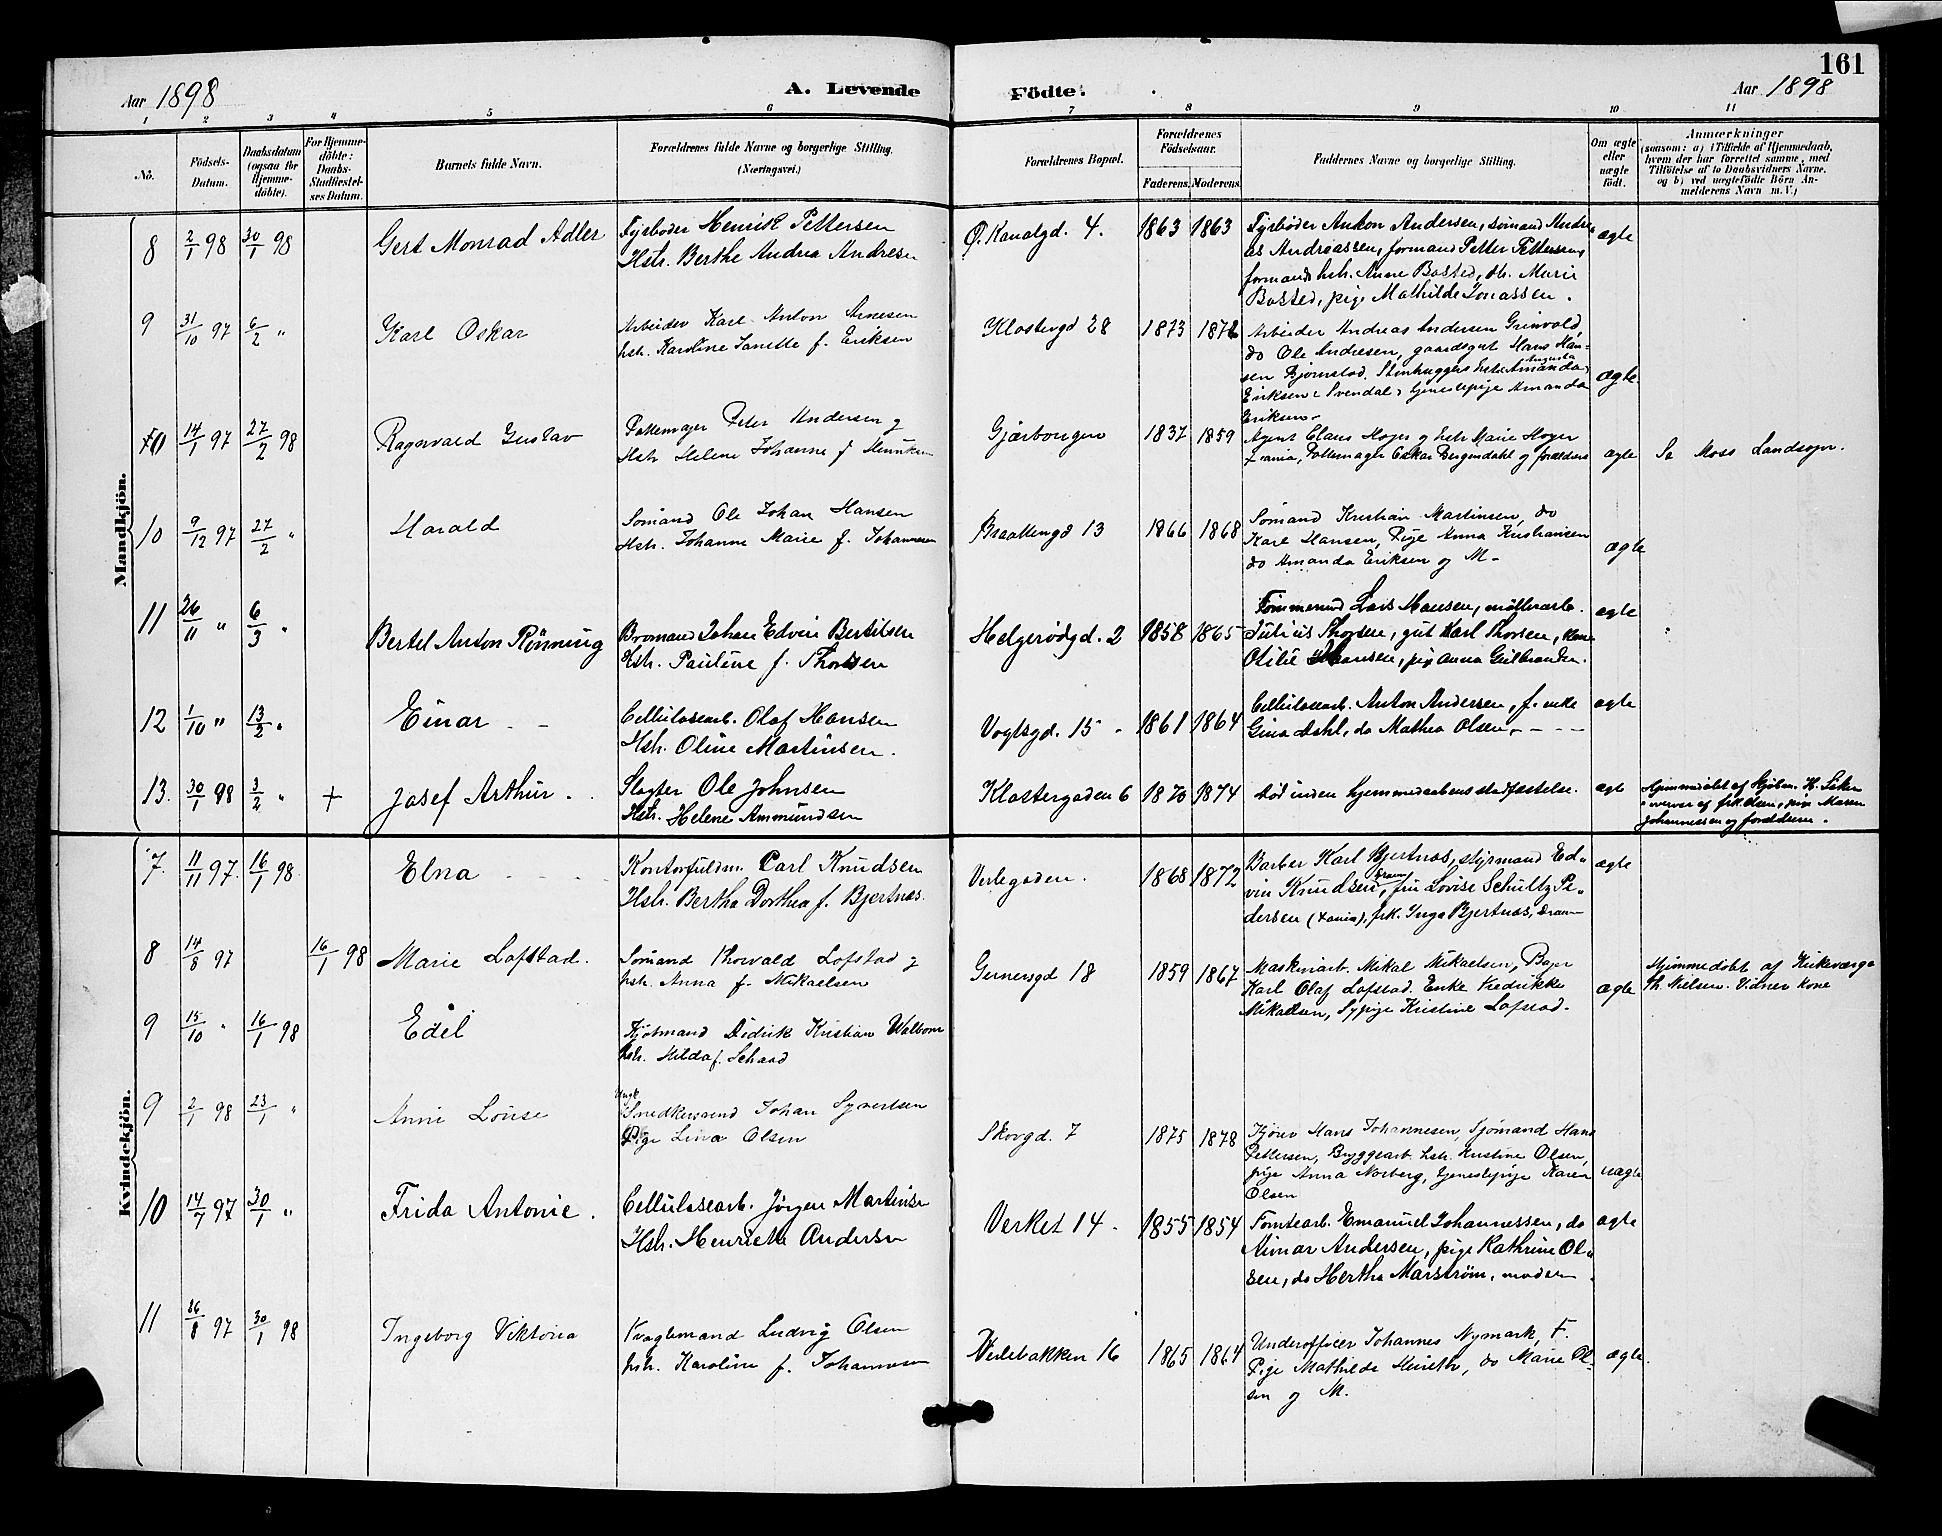 161
Aar 1898
A. Levende
Födte.
Aar 1898
1 2 3 4 5 6 7 8 9 10 11
No.
Födsels-
Datum.
Daabsdatum
(ogsaa for
Hjemme-
döbte).
For Hjemme-
döbte:
Daabs-
Stadfæstel-
ses Datum.
Barnets fulde Navn.
Forældrenes fulde Navne og borgerlige Stilling.
(Næringsvei.)
Forældrenes Bopæl.
Forældrenes
Födselsaar.
Faderens.
Moderens.
Faddernes Navne og borgerlige Stilling.
Om ægte
eller
uægte
født.
Anmærkninger
(saasom: a) i Tilfælde af Hjemmedaab,
hvem der har forrettet samme, med
Tilföielse af to Daabsvidners Navne,
og b) ved uægtefödte Börn An-
melderens Navn m. V.)
Mandkjön.
8 2/1 98 30/1 98
Gert Monrad Adler
Fyrböder Henrik Pettersen
Hstr. Berthe Andrea Andresen
Ø. Kanalgd. 4.
1863 1863
Fyrböder Anton Andersen, sömand Andre-
as Andreassen, formand Petter Pettersen,
formands hstr. Anne Basted, do. Marie
Basted, pige Mathilde Jonassen.
ægte
9 31/10 97 6/2 "
Karl Oskar
Arbeider Karl Anton Arnesen
hstr. Karoline Janette f. Eriksen
Klostergd 28
1873 1872
Arbeider Andreas Andersen Grinvold,
do Ole Andresen, gaardsgut Hans Han-
sen Bjørnstad. Stenhuggers hstr. Amanda
Augusta
Eriksen Svendal, tjenestepige Amanda
Eriksen
ægte
10 14/1 97 27/2 98
Ragnvald Gustav
Pottemager Peter Andersen og
Hstr Helene Johanne f
Gjærbougen
1837 1859
Agent Claus Høyer og hstr Marie Høyer
Xania, Pottemager Oskar Bergendahl og forældrene
ægte
Se Moss Landsogn.
10 9/12 97 27/2 "
Harald
Sömand Ole Johan Hansen
Hstr. Johanne Marie f. Johannesen
Braattengd 13
1866 1868
Sömand Kristian Martinsen, do
Karl Hansen, Pige Anna Kristiansen
do Amanda Eriksen og M-
ægte
11 26/11 " 6/3 "
Bertel Anton Rönning
Bromand Johan Edvin Bertelsen
Hstr. Pauline f. Thorsen
Helgerödgd. 2
1858 1865
Tömmermd Lars Hansen, möllearb.
Julius Thorsen, gut Karl Thorsen, kone
Otilie Hansen, pige Anna Gulbrandsen.
ægte
12 1/10 " 13/2 "
Einar
Cellulosearb. Olaf Hansen
Hstr. Oline Martinsen.
Vogtsgd. 15
1861 1864
Cellulosearb. Anton Andersen, f. enke
Gina Dahl, do Mathea Olsen,
ægte
13. 30/1 98 3/2 " +
Josef Arthur.
Slagter Ole Johnsen
Hstr. Helene Ammundsen
Klostergaden 6
1870 1874
Död inden hjemmedaabens stadfæstelse.
ægte
Hjemmedöbt af
i nærvær af frk. Olsen, pige Maren
Johannessen og forældrene.
Kvindekjön.
7. 11/11 97. 16/1 98
Elna
Kontorfuldm. Carl Knudsen
Hstr. Bertha Dorthea f. Bjertnæs.
Verlegaden.
1868 1872
Barber Karl Bjertnæs, styrmand Ed-
vin Knudsen, fru Lovise Schultz Pe-
dersen (Xania), frk. Inga Bjertnæs,
ægte
8 14/8 97 16/1 98
Marie Lofstad.
Sömand Thorvald Lofstad og
hstr. Anna f. Mikaelsen
Gernersgd 18
1859 1867
Maskinarb. Mikal Mikaelsen, Bager
Karl Olaf Lofstad. Enke Fredrikke
Mikaelsen, Sypige Kristine Lofstad.
ægte
Hjemmedöbt af Kirkeværge
Th. Nielsen. Vidner kone
9 15/10 " 16/1 98
Edel
Kjöbmand Didrik Kristian
hstr. Hilda f. Schaad
9 2/1 98 23/1 "
Anni Louise
Ungk.
Snedkersvend Johan Syvertsen
Pige Lina Olsen
Skovgd. 7
1875 1878
Kjörer Hans Johannesen, Sjömand Hans
Pettersen, Bryggearb. hstr. Kristine Olsen,
pige Anna Norberg, tjenestepige Karen
Olsen
uægte
10 14/7 97 30/1 "
Frida Antonie.
Cellulosearb. Jörgen Martinsen
Hstr. Henriette Andersen
Verket 14
1855 1854
Tomtearb. Emanuel Johannessen, do
Andersen, pige Kathrine Ol-
sen, do Hertha Marström, moderen
ægte
11 26/8 97 30/1 98
Ingeborg Viktoria
Ludvig Olsen
hstr. Karoline f. Johannesen
Verlebakken 16
1865 1864
Underofficer Johannes Nymark, F.
Pige Mathilde, do Marie Ol-
sen og M.
ægte.